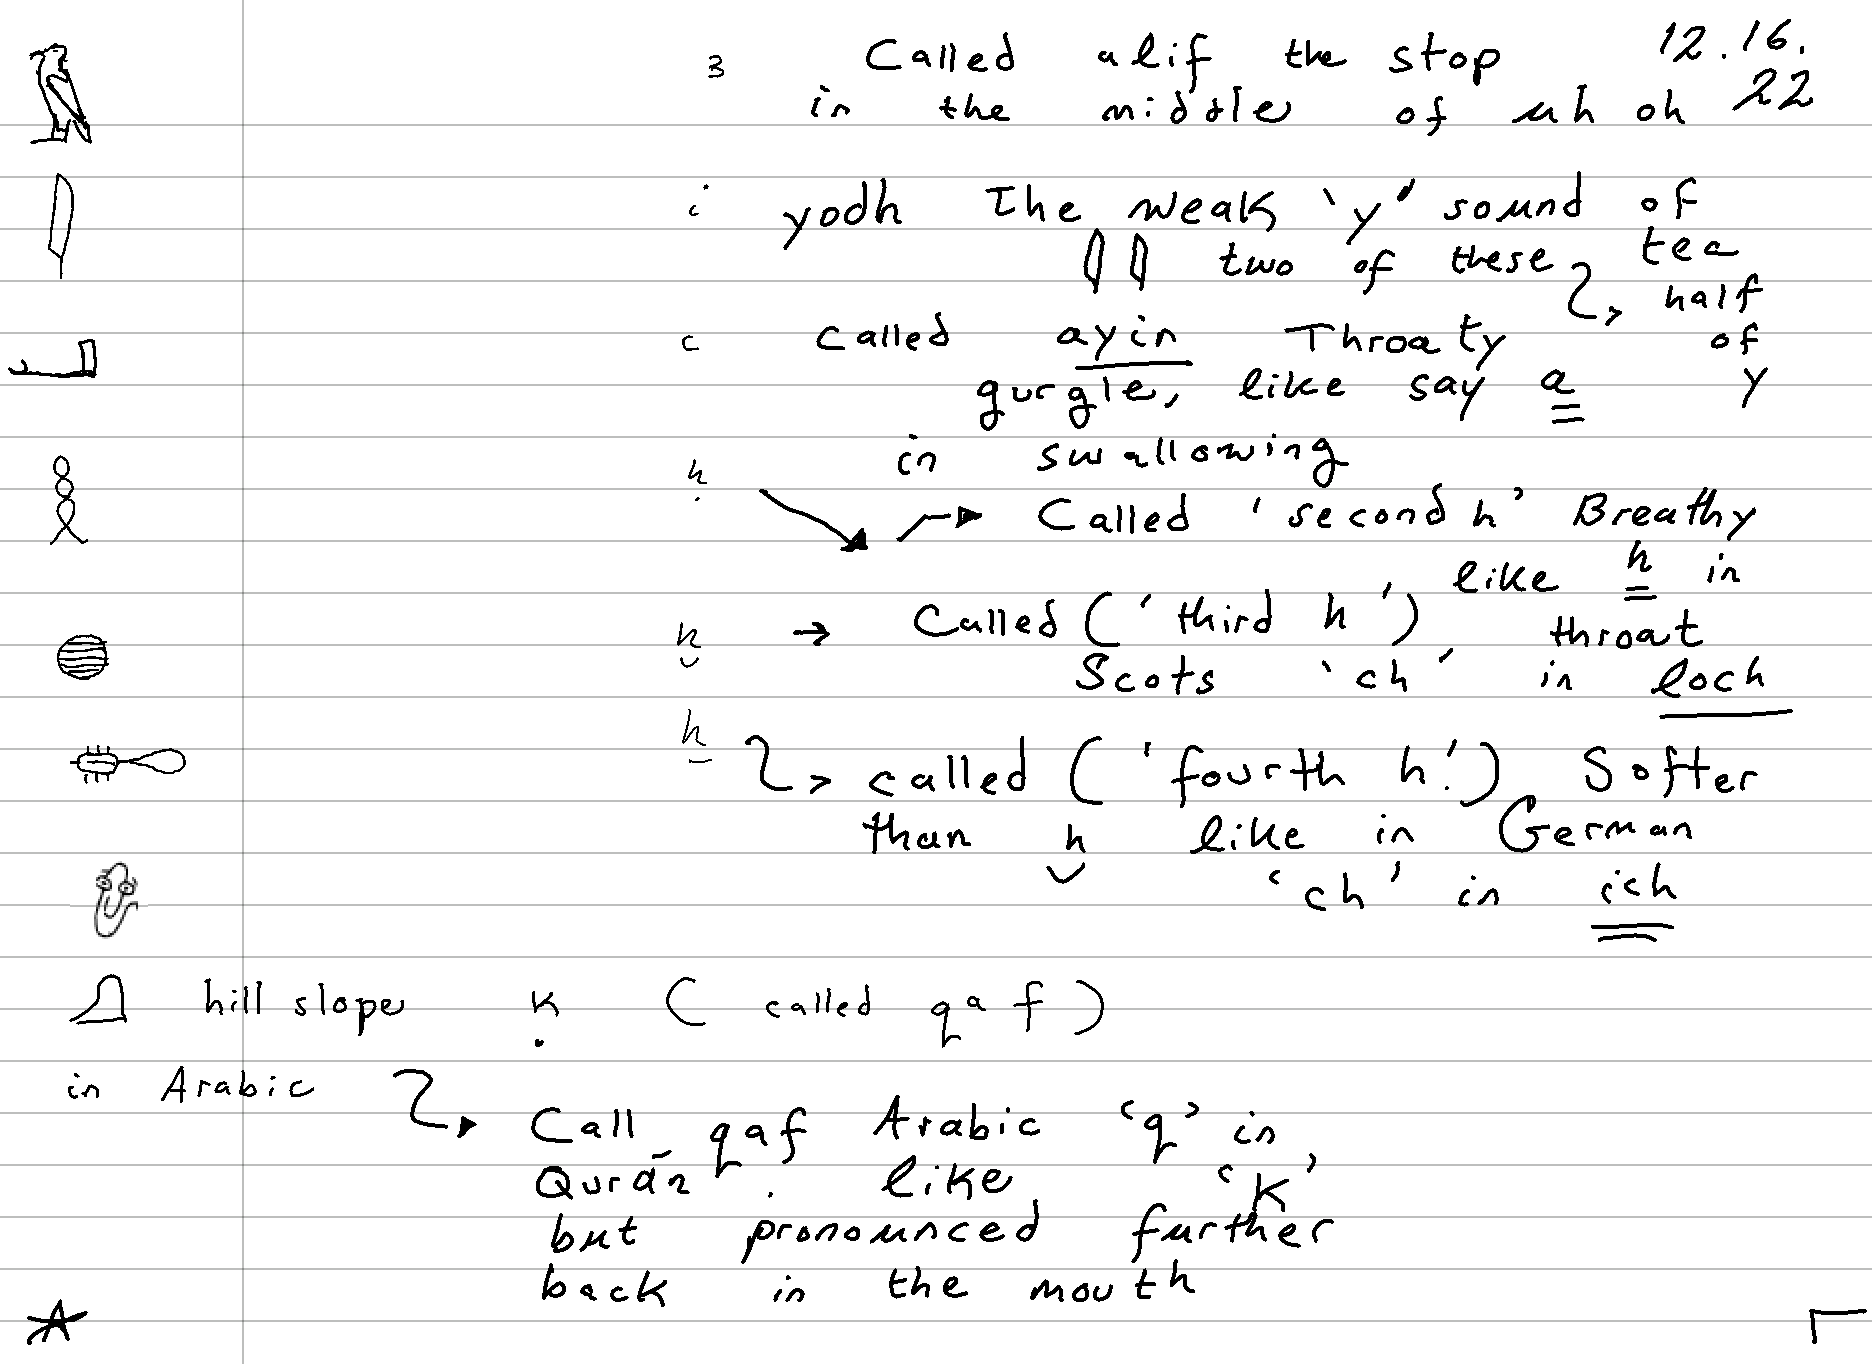 3 Called alif the stop 12.16.
in the middle of uh oh 22
i yodh The weak 'y' sound of
two of these tea
half
c called ayin Throaty of
gurgle, like say a y
in swallowing
ḥ Called 'second h' Breathy
like h in
ḫ → Called ('third h') throat
Scots 'ch' in loch
ẖ called ('fourth h'.) Softer
than ḫ like in German
'ch' in ich
hill slope ḳ (called qaf)
in Arabic
Call qaf Arabic 'q' in
Qurān . like 'K'
but pronounced further
back in the mouth